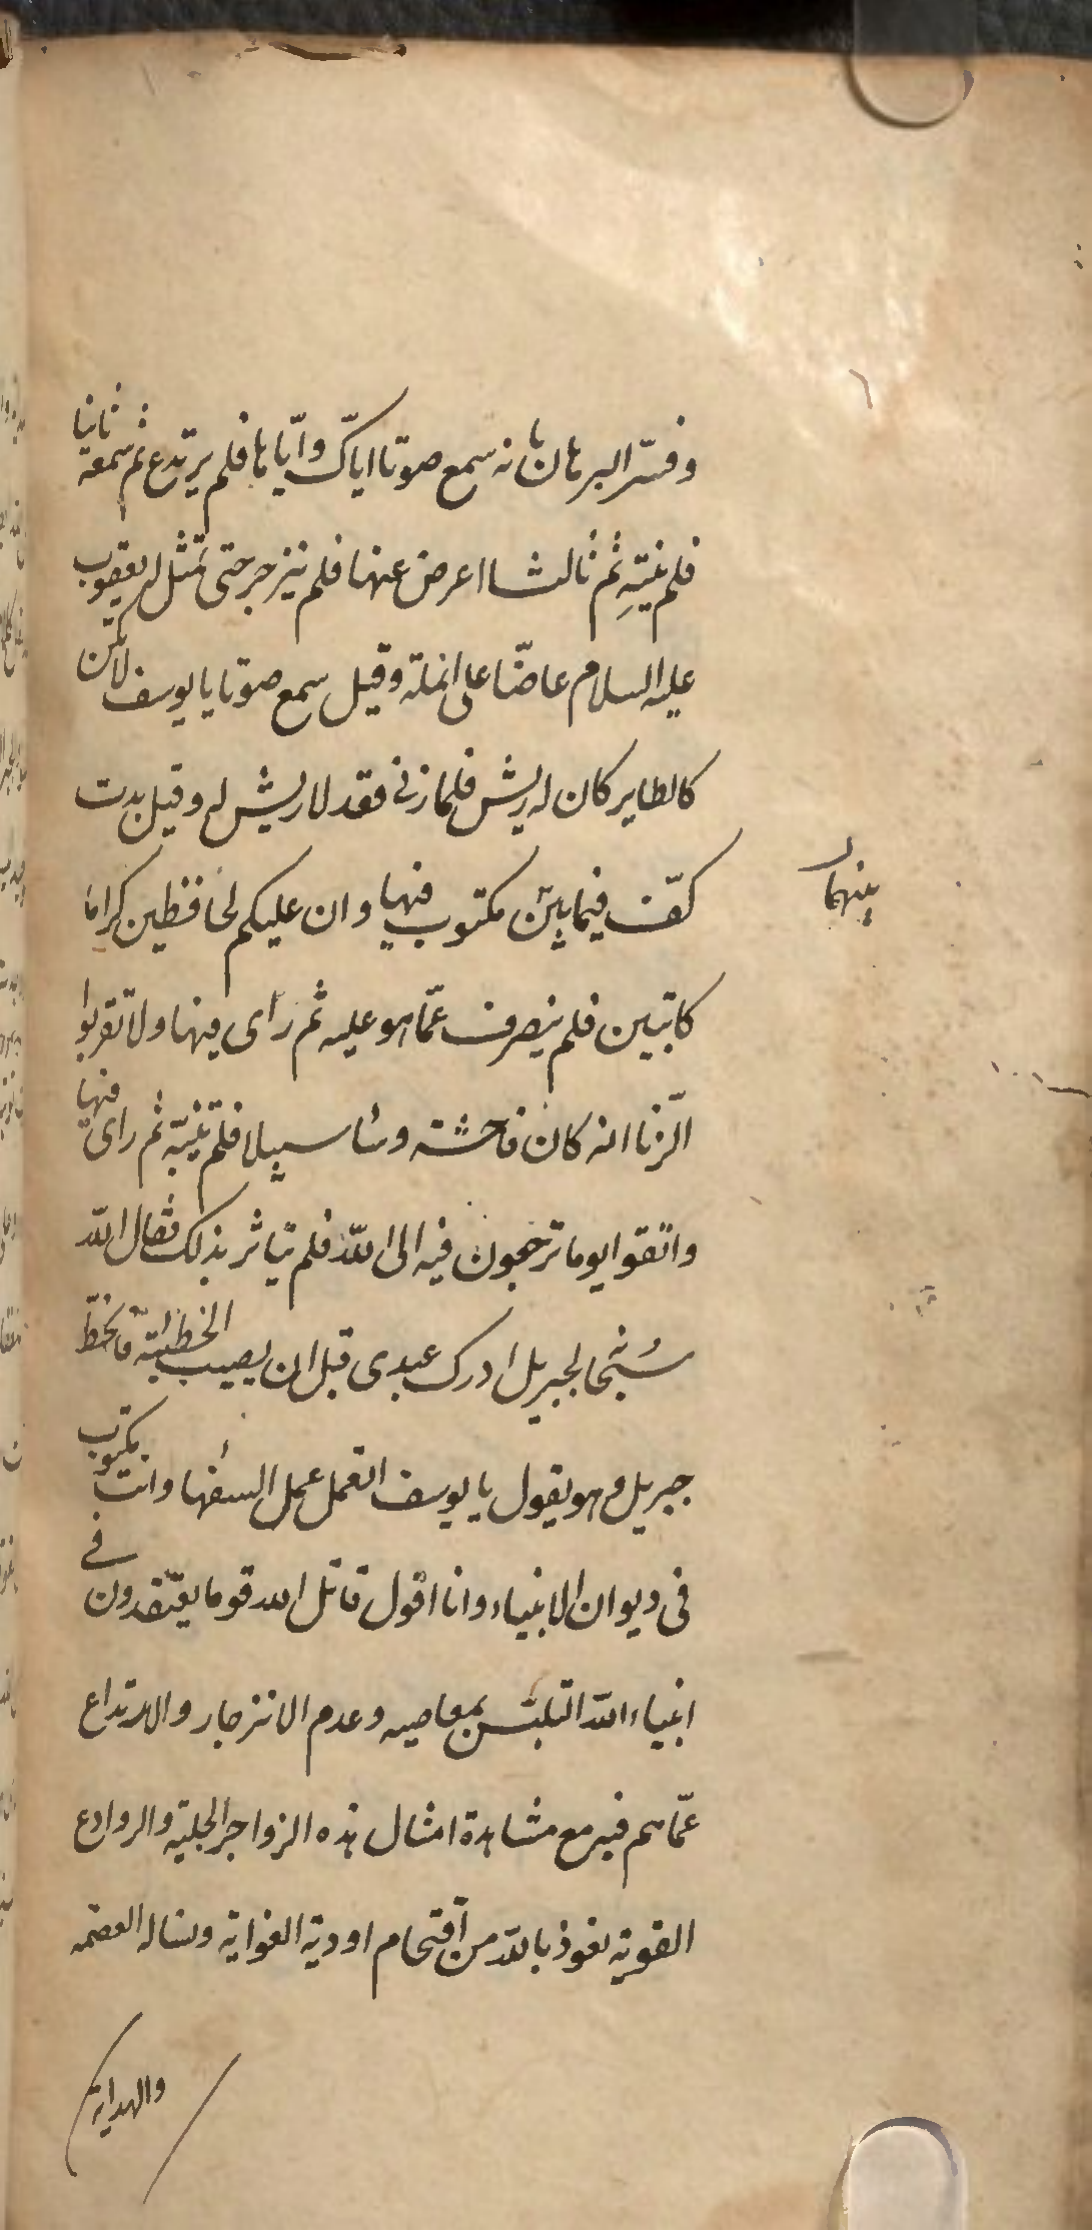 وفسّر البرهان بانه سمع صوتا اياك وايّاها فلم يرتدع ثم سمعه ثانيا
فلم ينته ثم ثالثا اعرض عنها فلم ينزجر حتى تمثّل له يعقوب
عليه السلام عاضّا على انملته وقيل سمع صوتا يا يوسف لا تكن
كالطاير كان له ريش فلما زنى فقد لا ريش له وقيل بدت
كفّ فيما بين مكتوب فيها وان عليكم لحافظين كراما
بينهما
كاتبين فلم ينصرف عمّا هو عليه ثم راى فيها ولا تقربوا
الزّنا انه كان فاحشة وساء سبيلا فلم ينتبه ثم راى فيها
واتقوا يوما ترجعون فيه الى الله فلم يتاثر بذلك فقال الله
سبحانه لجبريل ادرك عبدى قبل ان يصيب الخطيئة فانحطّ
جبريل وهو يقول يا يوسف اتعمل عمل السفهاء وانت مكتوب
فى ديوان الانبياء وانا اقول قاتل الله قوما يعتقدون فى
انبياء الله التلبّس بمعاصيه وعدم الانزجار والارتداع
عمّا هم فيه مع مشاهدة امثال هذه الزواجر الجلية والروادع
القوية نعوذ بالله من اقتحام اودية الغواية ونساله العصمه
والهداية